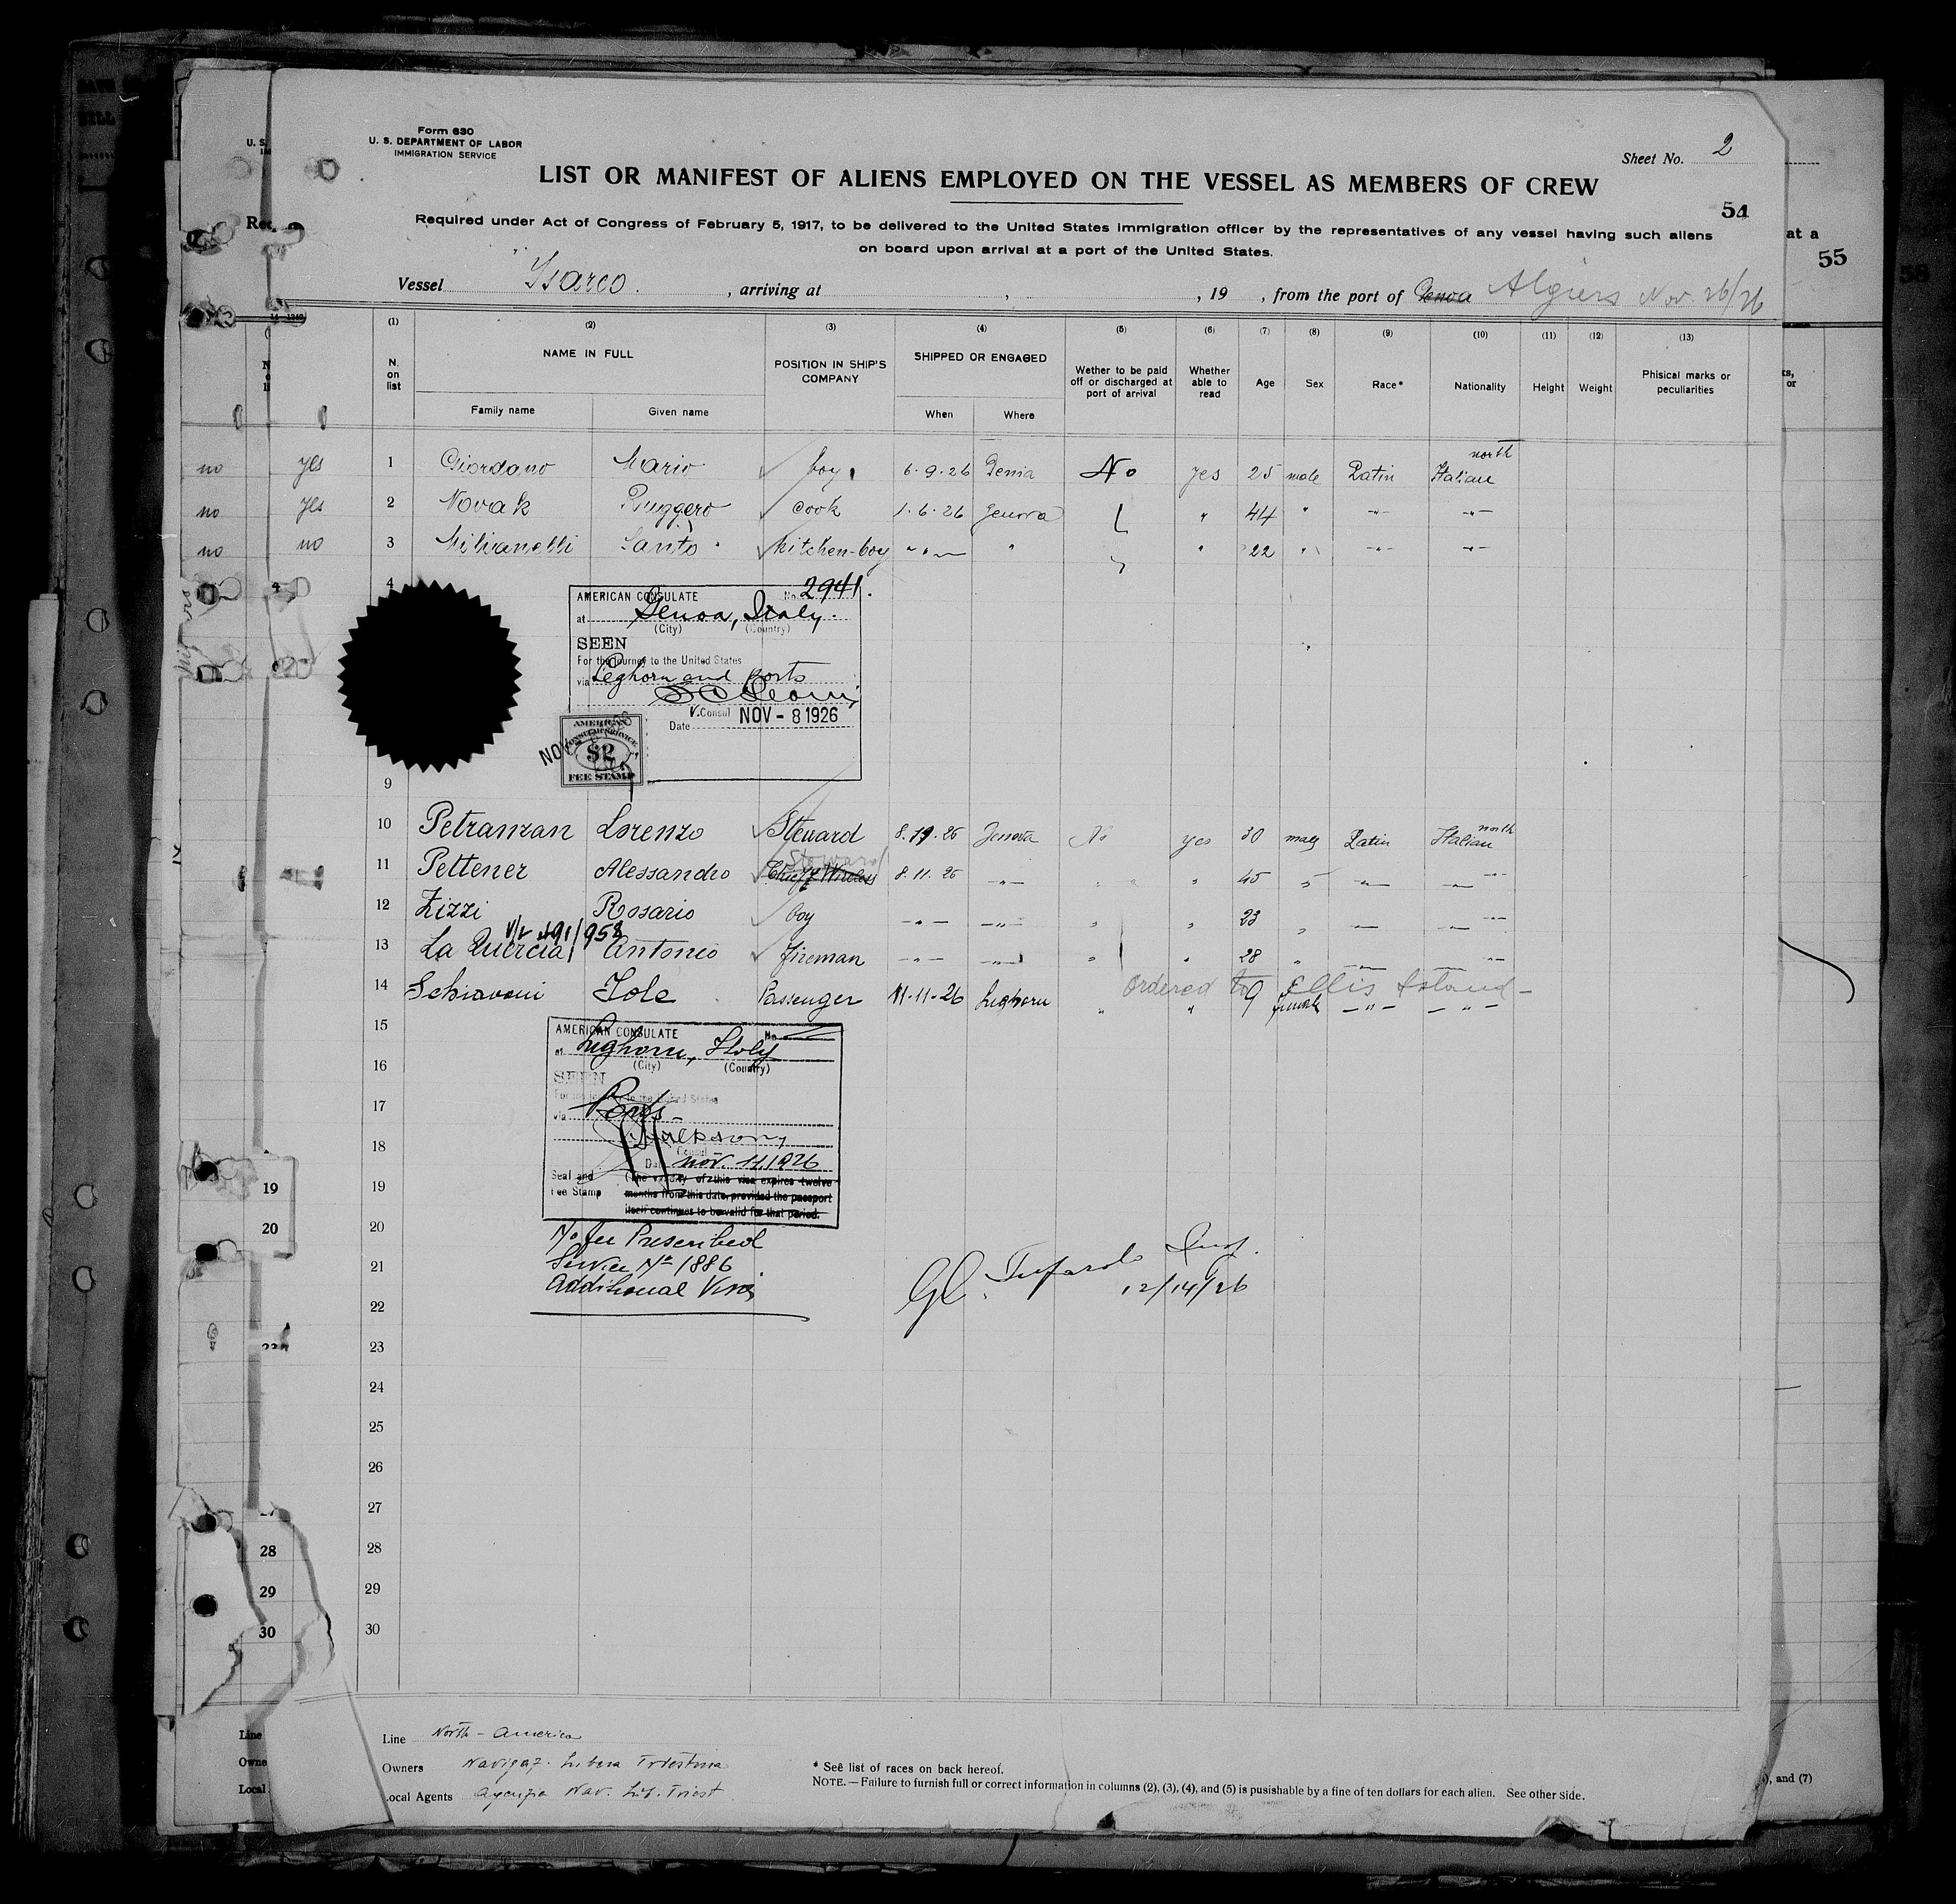 Form 630
U. S. DEPARTMENT OF LABOR
IMMIGRATION SERVICE
Sheet No. 2
LIST OR MANIFEST OF ALIENS EMPLOYED ON THE VESSEL AS MEMBERS OF CREW
54
Required under Act of Congress of February 5, 1917, to be delivered to the United States immigration officer by the representatives of any vessel having such aliens
on board upon arrival at a port of the United States.
at a
55
Vessel "Isarco. , arriving at , , 19 , from the port of Genoa Algiers Nov. 26/26
(1) (2) (3) (4) (5) (6) (7) (8) (9) (10) (11) (12) (13)
N. on list
NAME IN FULL
Family name
Given name
POSITION IN SHIP'S COMPANY
SHIPPED OR ENGAGED
When
Where
Wether to be paid off or discharged at port of arrival
Whether able to read
Age
Sex
Race*
Nationality
Height
Weight
Phisical marks or peculiarities
no yes 1 Giordano Mario boy 6.9.26 Genoa No yes 25 male Latin Italian north
no yes 2 Novak Ruggero cook 1.6.26 Genova " 44 " -"- -"-
no no 3 Santo kitchen-boy " " " 22 " -"- -"-
4
AMERICAN CONSULATE No. 2941.
at Genoa, Italy.
(City) (Country)
SEEN
For the journey to the United States
via Leghorn and ports
V. Consul
Date NOV - 8 1926
AMERICAN
CONSULAR SERVICE
$2
FEE STAMP
9
10 Petranzan Lorenzo Steward 8.19.26 Genova No yes 30 male Latin Italian north
Steward
11 Pettener Alessandro Chief Wireless 8.11.26 -"- " " 45 " -"- -"-
12 Zizzi Rosario boy -"- -"- " " 23 " -"- -"-
13 La Quercia Antonio fireman -"- -"- " " 28 " -"- -"-
ordered to Ellis Island -
14 Schiavoni Iole Passenger 11-11-26 Leghorn " " 9 female -"- -"-
15
AMERICAN CONSULATE No.
at Leghorn, Italy
(City) (Country)
16
SEEN
For the journey to the United States
17
via Ports
18
Consul
Date Nov. 11, 1926
19
Seal and
Fee Stamp
(The validity of this visa expires twelve
months from this date, provided the passport
itself continues to be valid for that period.
20
No fee Prescribed
21
Service No 1886
Additional Visa
22
Insp.
12/14/26
23
24
25
26
27
28
29
30
19
20
28
29
30
Line North-America
Owners Navigaz. Libera Triestina
Local Agents Agenzia Nav. Lib. Triest.
* See list of races on back hereof.
NOTE. — Failure to furnish full or correct information in columns (2), (3), (4), and (5) is pusishable by a fine of ten dollars for each alien. See other side.
), and (7)
Line
Owne
Local